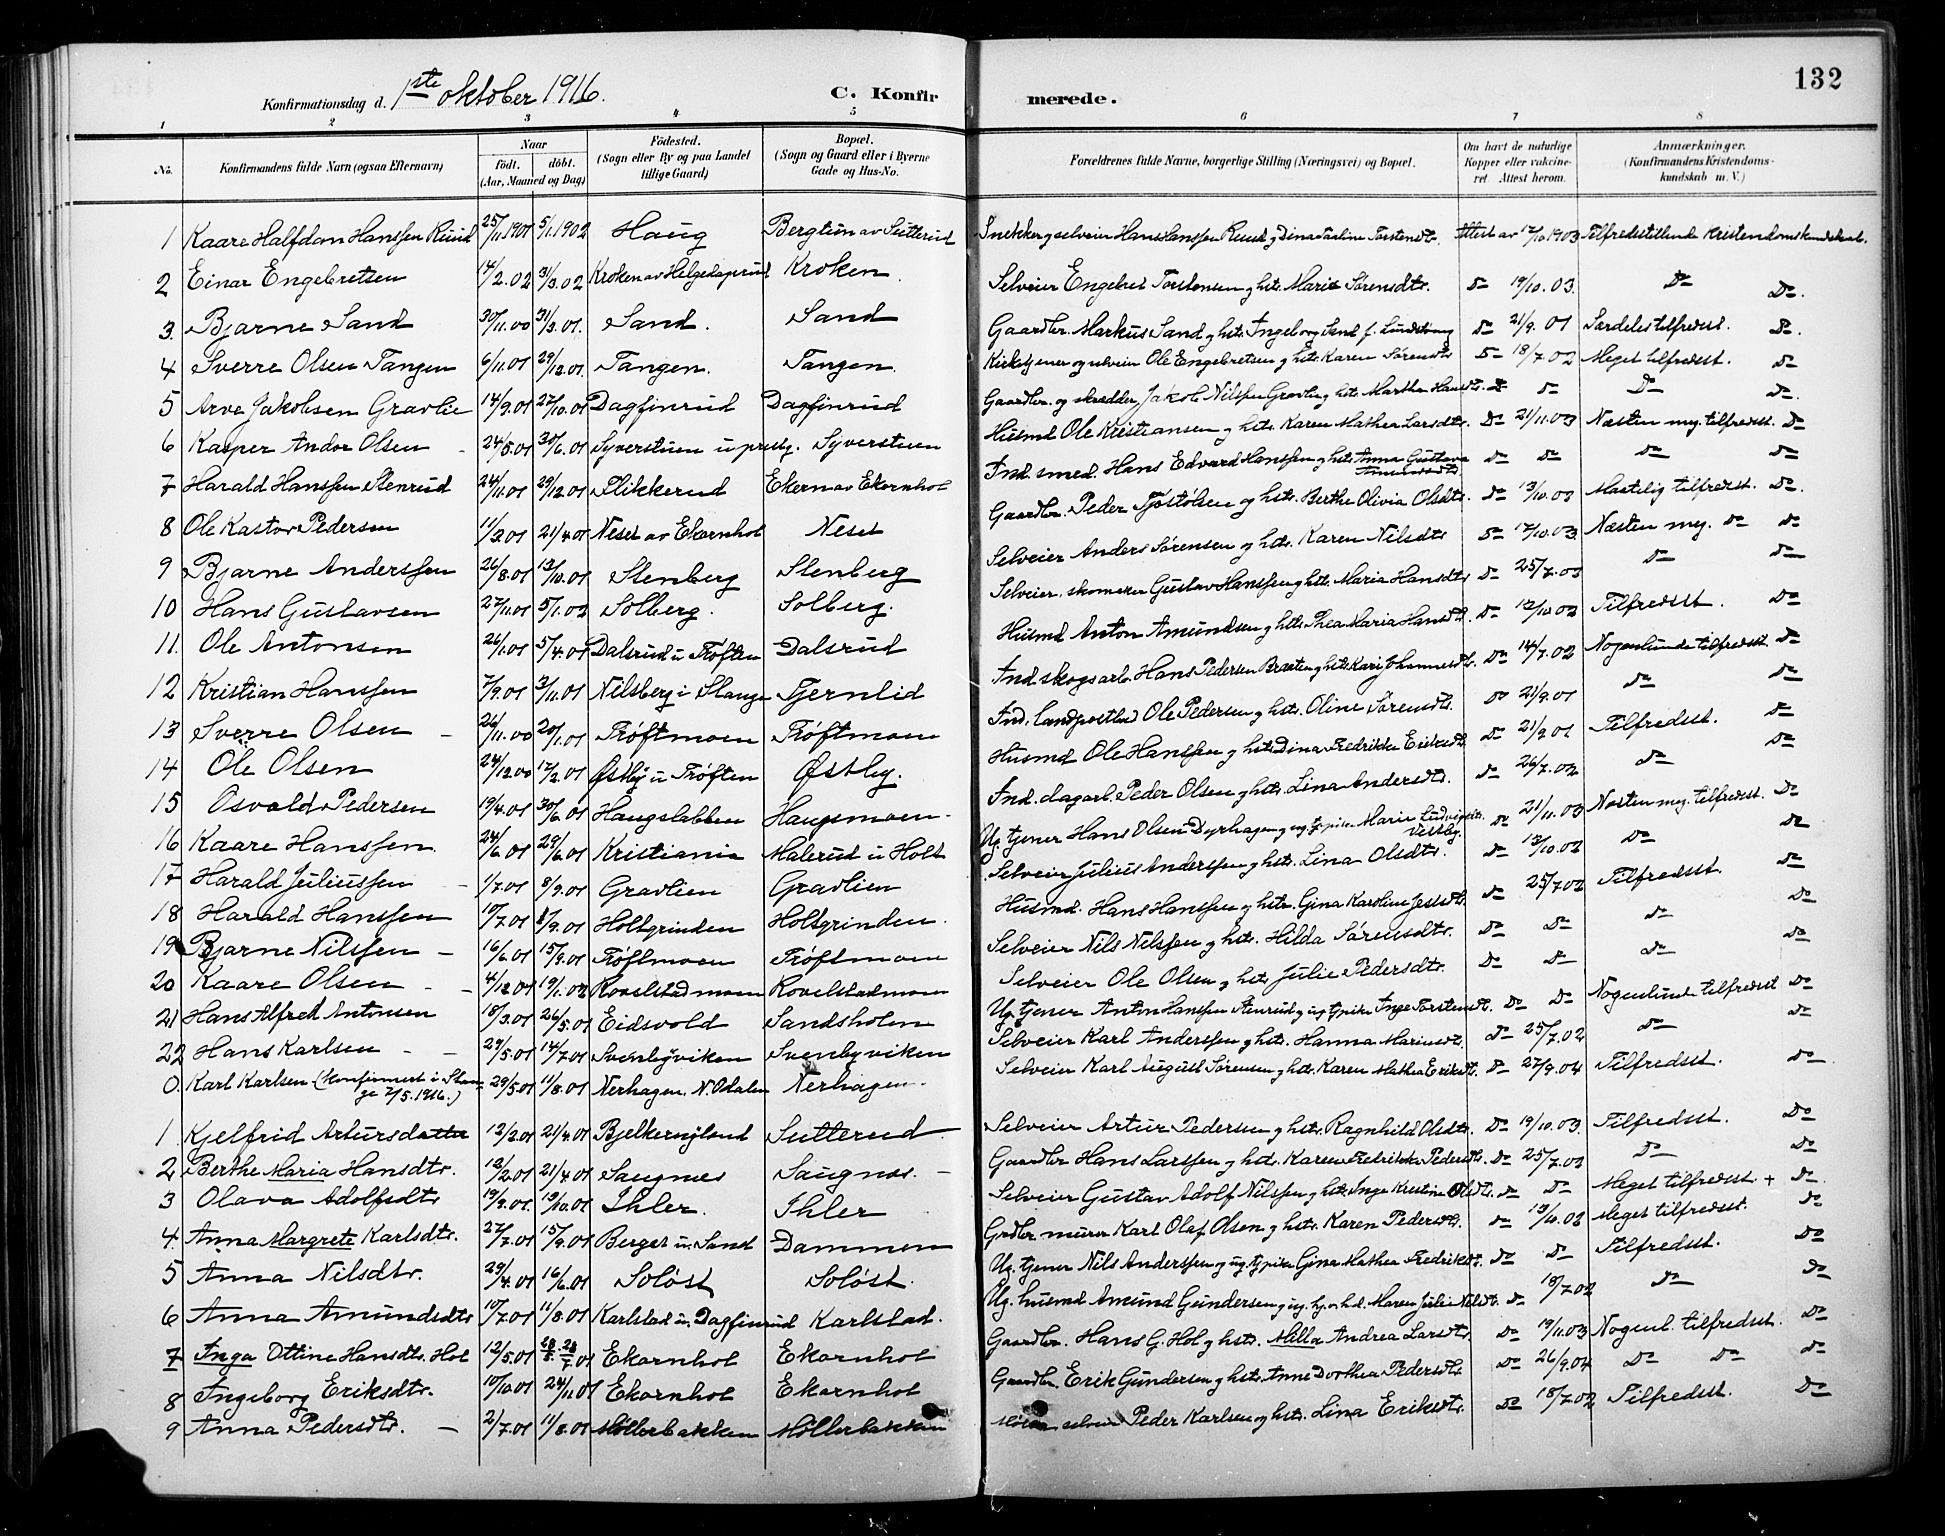 132
Konfirmationsdag d. 1ste oktober 1916.
C. Konfirmerede.
1 2 3 4 5 6 7 8
No.
Konfirmandens fulde Navn (ogsaa Efternavn)
Naar født. døbt. (Aar, Maaned og Dag)
Fødested. (Sogn eller By og paa Landet tillige Gaard)
Bopæl. (Sogn og Gaard eller i Byerne Gade og Hus-No.
Forældrenes fulde Navne, borgerlige Stilling (Næringsvei) og Bopæl.
Om havt de naturlige Kopper eller vakcineret. Attest herom.
Anmærkninger. (Konfirmandens Kristendomskundskab m. V.)
1 Kaare Halfdan Hanssen Ruud 25/11.1901 5/1.1902 Haug Bergtun av Sutterud Snekker og selveier Hans Hanssen Ruud og Dina Pauline Torstendtr. Attest av 17/10 1903 Tilfredsstillende Kristendomskundskab.
2 Einar Engebretsen 14/2.02 31/3.02 Kroken av Helgedagsrud Kroken Selveier Engebret Torstensen og hstr. Marie Sørensdtr. Do 19/10.03 Do Do.
3. Bjarne Sand 30/11.00 31/3.01. Sand. Sand Gaardbr. Markus Sand og hstr. Ingeborg Sand f. Lundstrøng Do 21/9. 01 Særdeles tilfredsst. Do.
4 Sverre Olsen Tangen 6/11.01 29/12.01. Tangen. Tangen. Kirketjener og selveier Ole Engebretsen og hstr. Karen Sørensdtr Do 18/7.02 Meget tilfredsst. Do
5 Arve Jakobsen Gravlie 14/9.01 27/10.01 Dagfinrud Dagfinrud Gaardbr. og skrædder Jakob Nilssen Gravlie og hstr. Marthe Hansdtr. Do Do Do Do.
6 Kasper Andor Olsen 24/5.01 30/6.01 Syverstuen u. prestg. Syverstuen Husmd Ole Kristiansen og hstr. Karen Mathea Larsdtr. Do 21/11.03 Næsten meg. tilfredsst. Do
7 Harald Hanssen Stenrud 24/11.01 29/12.01 Flikkerud Ekern av Ekornhol Ind. smed. Hans Edvard Hanssen og hstr. Anna Gustava Amundsdtr. Do Do Do Do
8 Ole Kastor Pedersen 11/3.01 21/4.01 Neset av Ekornhol Neset Gaardbr. Peder Tjøstølsen og hstr. Berthe Olivia Olsdtr. Do 13/10.03 Maatelig tilfredsst. Do.
9 Bjarne Anderssen 26/8.01 13/10.01 Stenberg Stenberg Selveier Anders Sørensen og hstr. Karen Nilsdtr Do 17/10.03. Næsten meg. Do Do
10 Hans Gustavsen 27/11.01 5/1.02 Solberg. Solberg. Selveier, skomaker Gustav Hanssen og hstr. Maria Hansdtr Do 25/7.03 Do Do
11. Ole Antonsen 26/1.01 5/4.01 Dalsrud u Trøften Dalsrud Husmd Anton Amundsen og hstr. Thea Maria Hansdtr. Do 12/10.02 Tilfredsst. Do
12 Kristian Hanssen 7/9.01 3/11.01 Nilsberg i Stange Tjernlid Ind. skogsarb. Hans Pedersen Braaten og hstr. Kari Johannesdtr. Do 14/7.02 Nogenlunde tilfredsst. Do
13 Sverre Olsen 26/11.00 20/1.01 Trøftmoen Trøftmoen Ind. landpostbud Ole Pedersen og hstr. Oline Sørensdtr. Do 21/9.01 Do Do
14 Ole Olsen 24/12.00 17/2.01 Østby u Trøften Østby. Husmd Ole Hanssen og hstr. Dina Fredrikke Eriksdtr Do 21/9.01 Tilfredsst. Do
15 Osvald Pedersen 19/4.01 30/6.01 Haugslabben Haugsmoen. Ind. dagarb. Peder Olsen og hstr. Lina Andersdtr. Do 26/7.02 Do Do
16 Kaare Hanssen. 24/6.01 29/6.01 Kristiania Malerud u Holt Ug. tjener Hans Olsen Dyrhagen og ug. tj.pike Marie Ludvigsdtr. Vestby. Do 21/11.03 Næsten meg. tilfredsst. Do
17 Harald Juliussen 1/7.01 8/9.01 Gravlien Gravlien Selveier Julius Anderssen og hstr. Lina Olsdtr. Do 13/10.02 Do Do
18 Harald Hanssen 10/7.01 8/9.01 Holtgrinden Holtgrinden. Husmd. Hans Hanssen og hstr. Gina Karoline Jensdtr. Do 25/7.02 Tilfredsst. Do
19 Bjarne Nilssen 16/6.01 15/9.01 Trøftmoen Trøftmoen Selveier Nils Nilssen og hstr. Hilda Sørensdtr. Do Do Do Do
20 Kaare Olsen 4/12.01 19/1.02 Rovelstadmoen Rovelstadmoen Selveier Ole Olsen og hstr. Julie Pedersdtr. Do Do Do Do
21 Hans Alfred Antonsen 18/3.01 26/5.01 Eidsvold Sandsholen Ug. tjener Anton Hanssen Stenrud og ug. tj.pike Inge Torstensdtr. Do Do Nogenlunde tilfredsst Do
22 Hans Karlsen 29/5.01 14/7.01 Svenbyviken Svenbyviken Selveier Karl Anderssen og hstr. Hanna Mariusdtr. Do 25/7.02 Do Do
0. Karl Karlsen (konfirmert i Stange 7/5.1916.) 29/5.01 11/8.01 Nerhagen, N. Odalen Nerhagen. Selveier Karl August Sørensen og hstr. Karen Mathea Eriksdtr. Do 27/9.04 Tilfredsst. Do
1 Kjelfrid Artursdatter 13/3.01 21/4.01 Bjelkernyland Sutterud Selveier Artur Pedersen og hstr. Ragnhild Olsdtr. Do 19/10.03. Tilfredsst. Do
2 Berthe Maria Hansdtr. 12/2.01 21/4.01 Saugnes Saugnes. Gaardbr Hans Larssen og hstr. Karen Fredrikke Pedersdtr. Do 25/7.02 Do Do
3 Olava Adolfsdtr 19/9.01 13/10.01 Ihler. Ihler Selveier Gustav Adolf Nilssen og hstr. Inga Kristine Olsdtr. Do Do Meget tilfredsst + Do.
4. Anna Margrete Karlsdtr. 27/7.01 15/9.01 Berget u. Sand Dammen Grdbr. murer Karl Olaf Olsen og hstr. Karen Pedersdtr. Do 13/10.02 Meget tilfredsst. Do
5 Anna Nilsdtr. 29/4.01 16/6.01 Soløst Soløst. Ug. tjener Nils Anderssen og ug. tj.pike Gina Mathea Fredriksdtr. Do Do Tilfredsst. Do
6 Anna Amundsdtr 10/7.01 11/8.01 Karlstad u. Dagfinrud Karlstad. Ug. husmd Amund Gundersen og ug. hj.v.h.d. Maren Julie Nilsdtr. Do 18/7.02 Do Do
7 Inga Ottine Hansdtr. Hol 12/5.01 28/7.01 Ekornhol Ekornhol Gaardbr. Hans G. Hol og hstr. Milla Andrea Larsdtr. Do 19/11.03 Nogenl. tilfredsst. Do
8 Ingeborg Eriksdtr. 10/10.01 24/11.01 Ekornhol Ekornhol Gaardbr. Erik Gundersen og hstr. Anne Dorthea Pedersdtr. Do 26/9.04 Do Do Do
9 Anna Pedersdtr. 2/7.01 11/8.01 Møllerbakken Møllerbakken selveier Peder Karlsen og hstr. Lina Eriksdtr. Do 18/7.02 Tilfredsst. Do